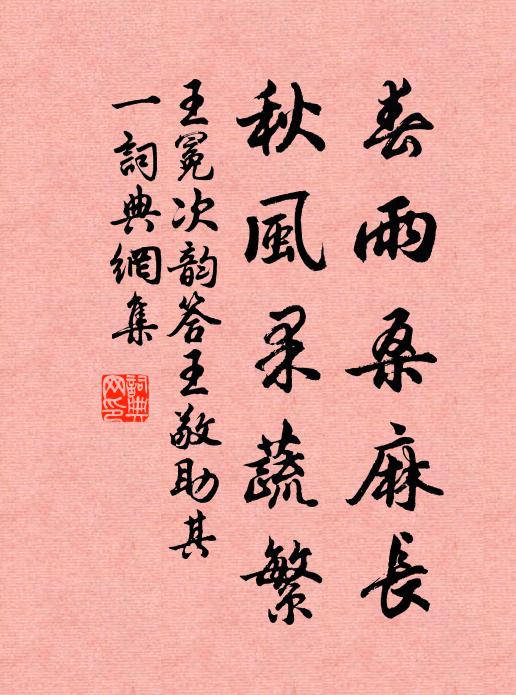 春雨桑麻長
秋風果蔬繁
王冕次韵答王敬助其
一詞典網集
詞典網印